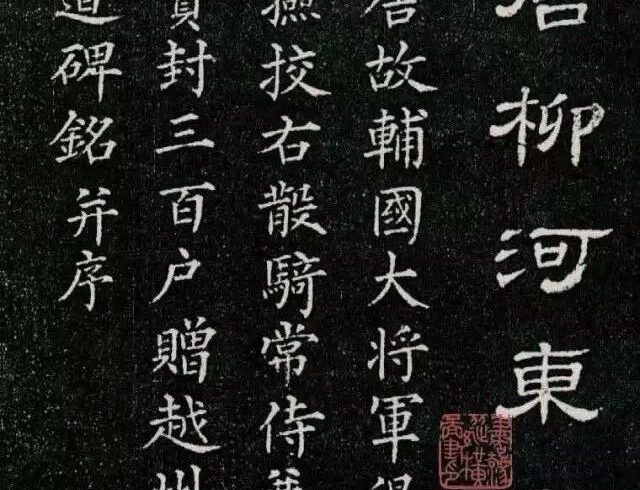 柳河東
故輔國大将軍
挍右散騎常侍
實封三百户贈越
道碑銘并序